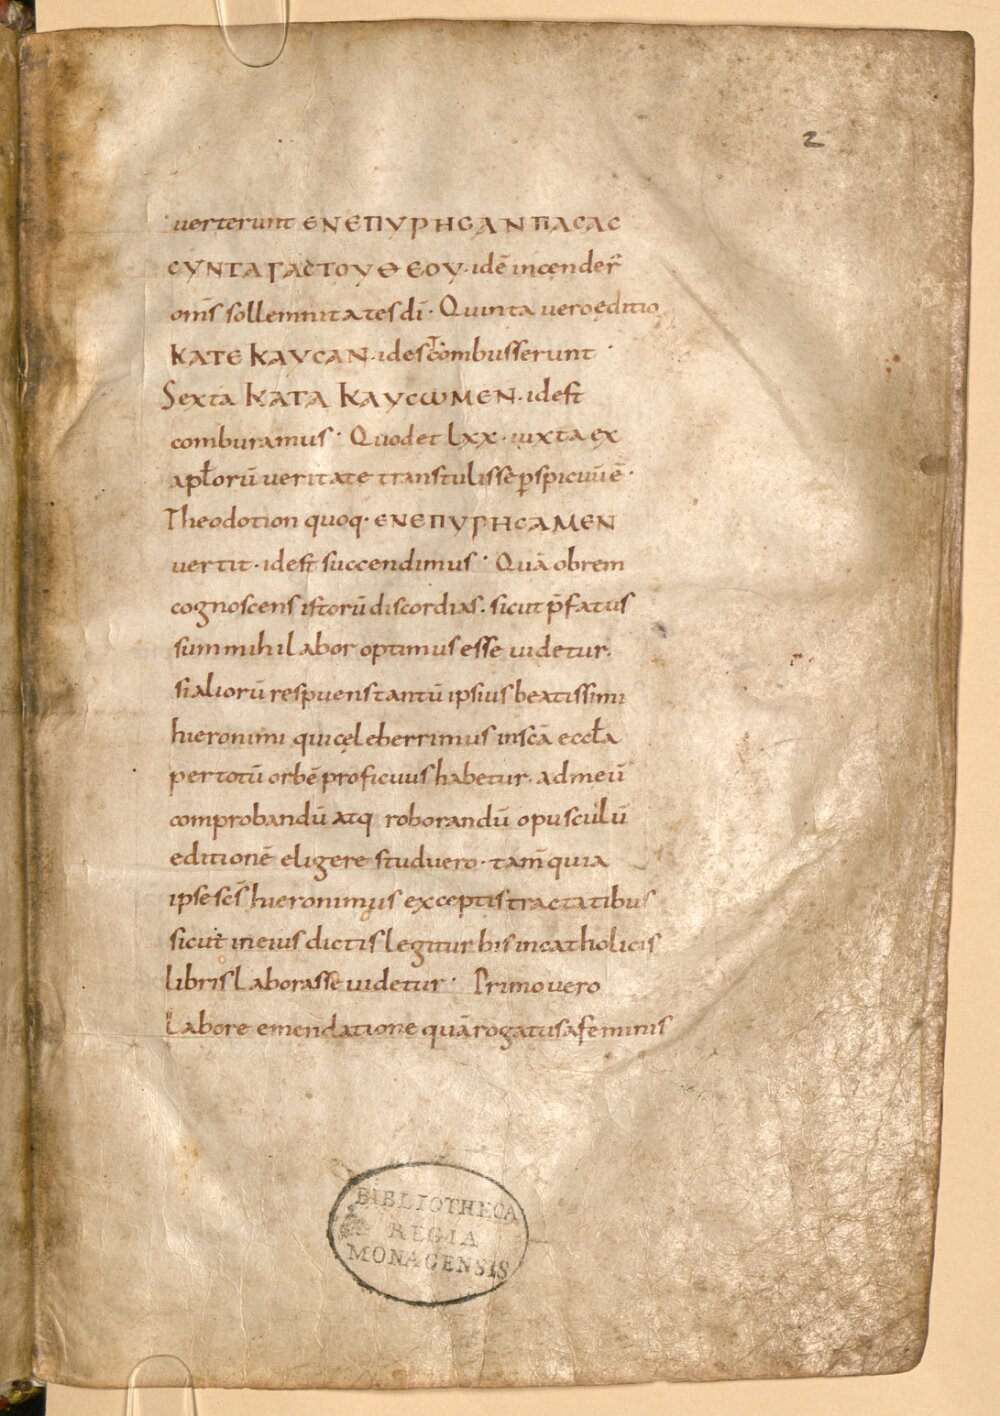 2
uerterunt ΕΝΕΠΥΡΗCΑΝ ΠΑCΑC
CΥΝΤΑΓΑC ΤΟΥ ΘΕΟΥ· idē incender̄
om̄s sollemnitates dī· Quinta uero editio
ΚΑΤΕΚΑΥCΑΝ· idest combusserunt·
Sexta ΚΑΤΑΚΑΥCωΜΕΝ· idest
comburamus· Quod et lxx· iuxta ex
aplorū ueritate transtulisse ꝑspicuū ē·
Theodotion quoq· ΕΝΕΠΥΡΗCΑΜΕΝ
uertit· idest succendimus· Quā obrem
cognoscens istorū discordias· sicut p̄fatus
sum mihi labor optimus esse uidetur·
si aliorū respuens tantū ipsius beatissimi
hieronimi qui cęleberrimus in scā eccła
per totū orbē proficuus habetur· ad meū
comprobandū atq roborandū opusculū
editionē eligere studuero· tam̄ quia
ipse sc̄s hieronimus exceptis tractatibus
sicut in eius dictis legitur bis in catholicis
libris laborasse uidetur· Primo uero
labore emendatione quā rogatus a feminis
BIBLIOTHECA
REGIA
MONACENSIS